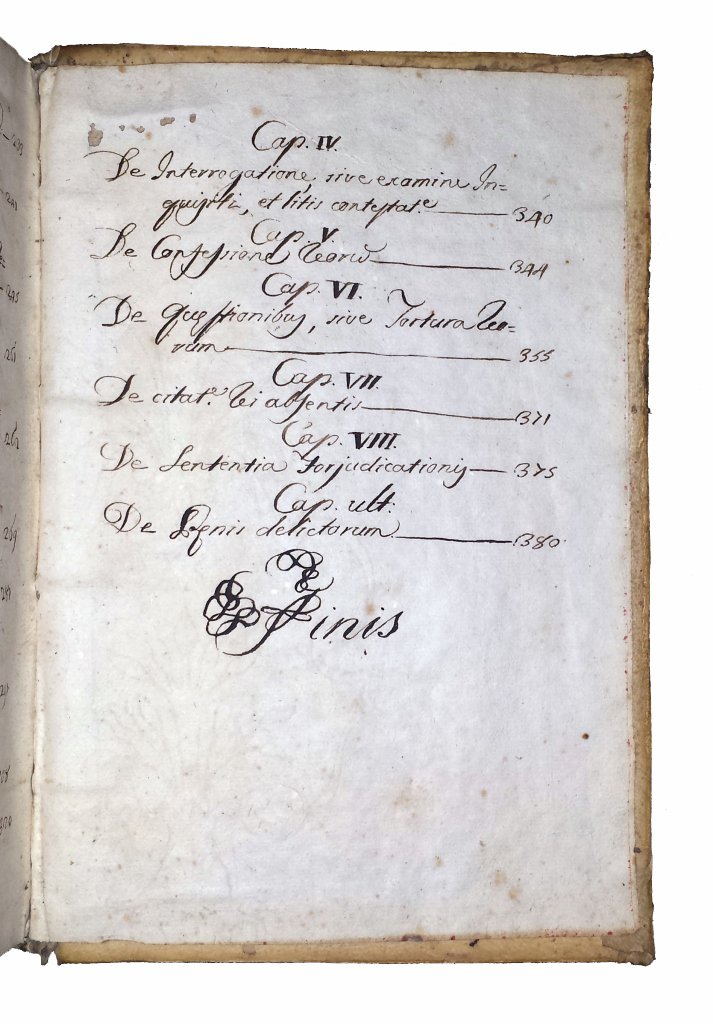 Cap. IV.
De Interrogatione, sive examine In=
quisiti, et litis contestat.e 340
Cap. V
De Confessione Reorū 344
Cap. VI.
De Quæstionibus, sive Tortura Reo=
rum 355
Cap. VII
De citat.e Rei absentis 371
Cap. VIII.
De Sententia Forjudicationis 375
Cap. ult.
De Pœnis delictorum 380
Finis